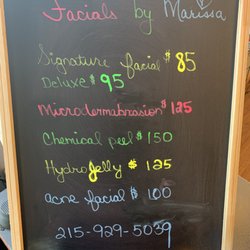 Facials by Marissa
Signature facial $85
Deluxe $95
Microdermabrasion $125
Chemical peel $150
Hydrojelly $125
acne facial $100
215-929-5039